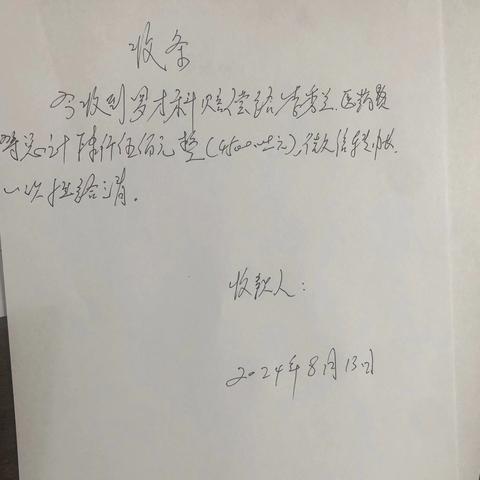 收条
今收到罗才科赔偿给李秀兰医药费
等总计陆仟伍佰元整(元),微信转账.
一次性结清.
收款人:
2024年8月13日